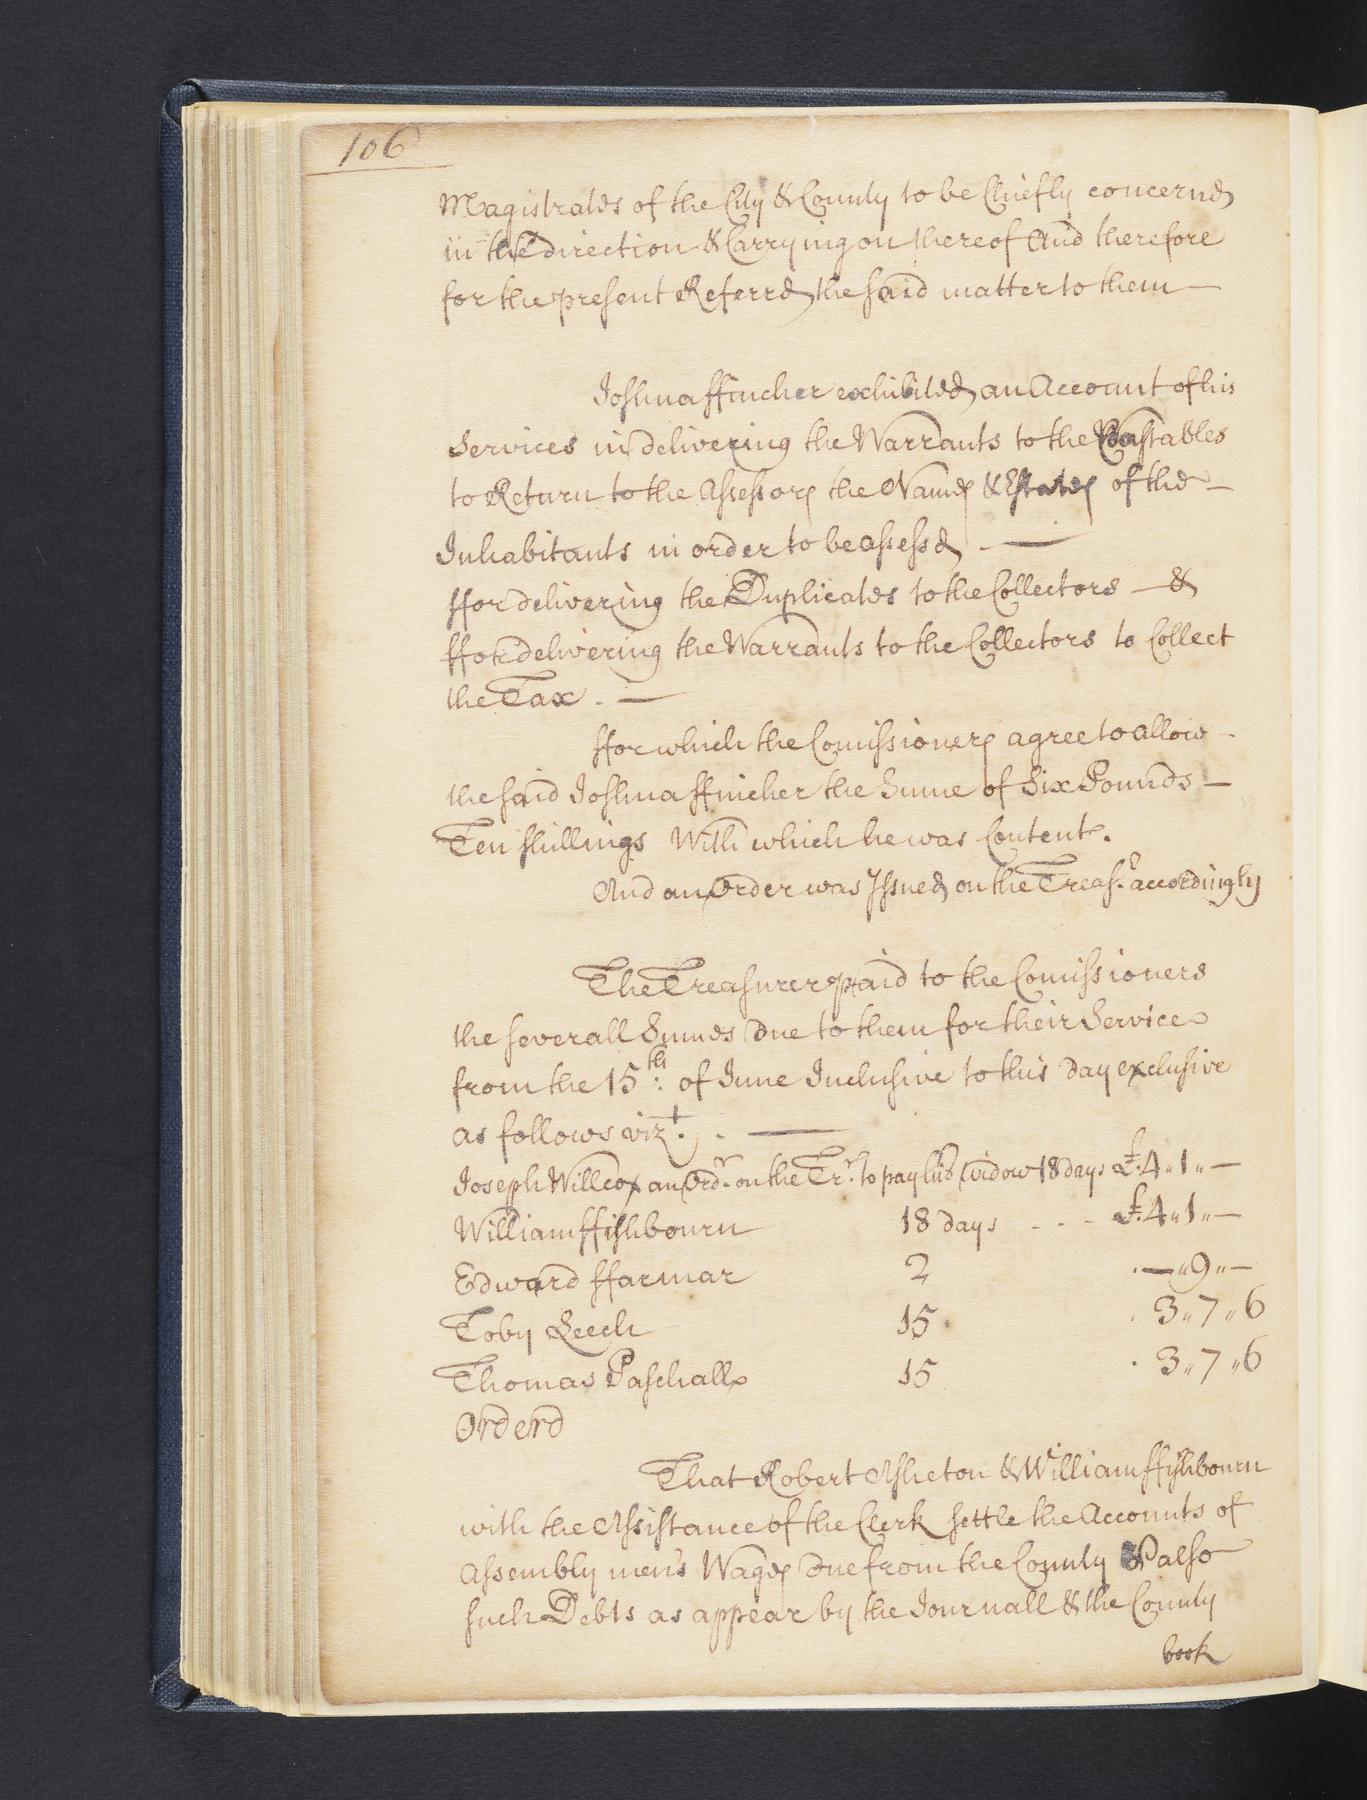 106
Magistrates of the City & County to be Chiefly concernd
in the direction & Carrying on thereof And therefore
for the present Referrd the said matter to them —
Joshua ffincher exhibited an Account of his
Services in delivering the Warrants to the Constables
to Return to the Assessors the Names & Estates of the —
Inhabitants in order to be assessd . —
ffor delivering the Duplicates to the Collectors — &
ffor delivering the Warrants to the Collectors to Collect
the Tax . —
ffor which the Comissioners agree to allow -
the said Joshua ffincher the Sume of Six Pounds —
Ten shillings With which he was Content.
And an Order was Issued on the Treasr. accordingly
The Treasurer paid to the Comissioners
the severall Sumes Due to them for their Services
from the 15th: of June Inclusive to this Day exclusive
as follows vizt. ) . —
Joseph Willcox an Ordr. on the Tr. to pay his widow 18 days £.4"1"—
William ffishbourn 18 days - - - £.4"1"—
Edward ffarmar 2 .—"9"—
Toby Leech 15. . 3"7"6
Thomas Paschall 15 . 3"7"6
Orderd
That Robert Asheton & William ffishbourn
with the Assistance of the Clerk settle the Accounts of
Assembly mens Wages Due from the County & also
such Debts as appear by the Journall & the County
book